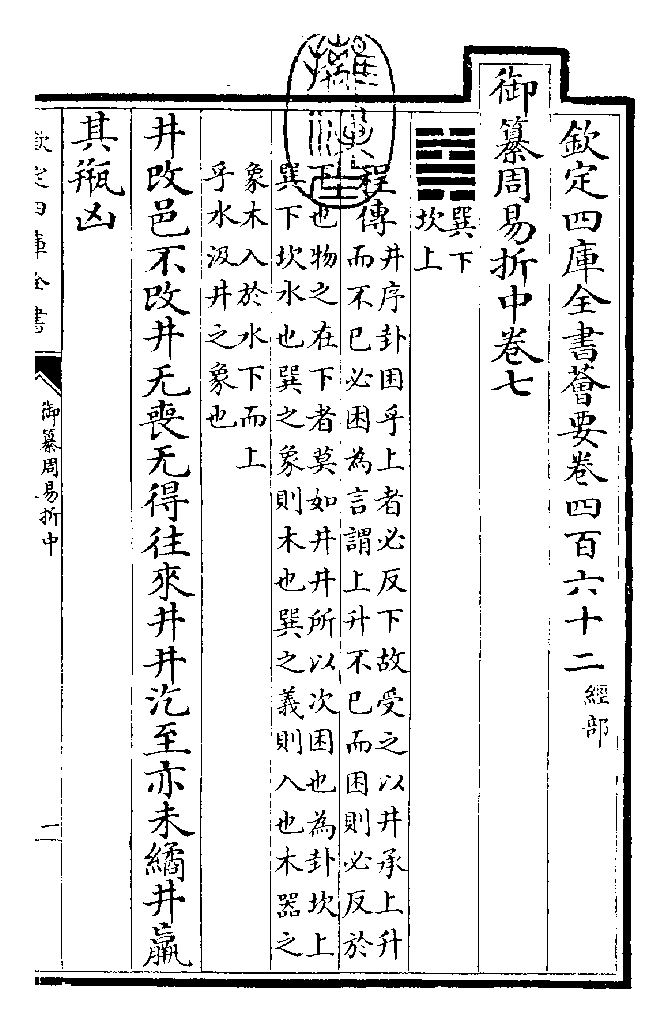 欽定四庫全書薈要卷四百六十二 經部
御纂周易折中卷七
䷯ 巽下
坎上
程傳 井序卦困乎上者必反下故受之以井承上升
而不已必困為言謂上升不已而困則必反於
下也物之在下者莫如井井所以次困也為卦坎上
巽下坎水也巽之象則木也巽之義則入也木器之
象木入於水下而上
乎水汲井之象也
井改邑不改井无喪无得往來井井汔至亦未繘井羸
其瓶凶
欽定四庫全書
御纂周易折中
一